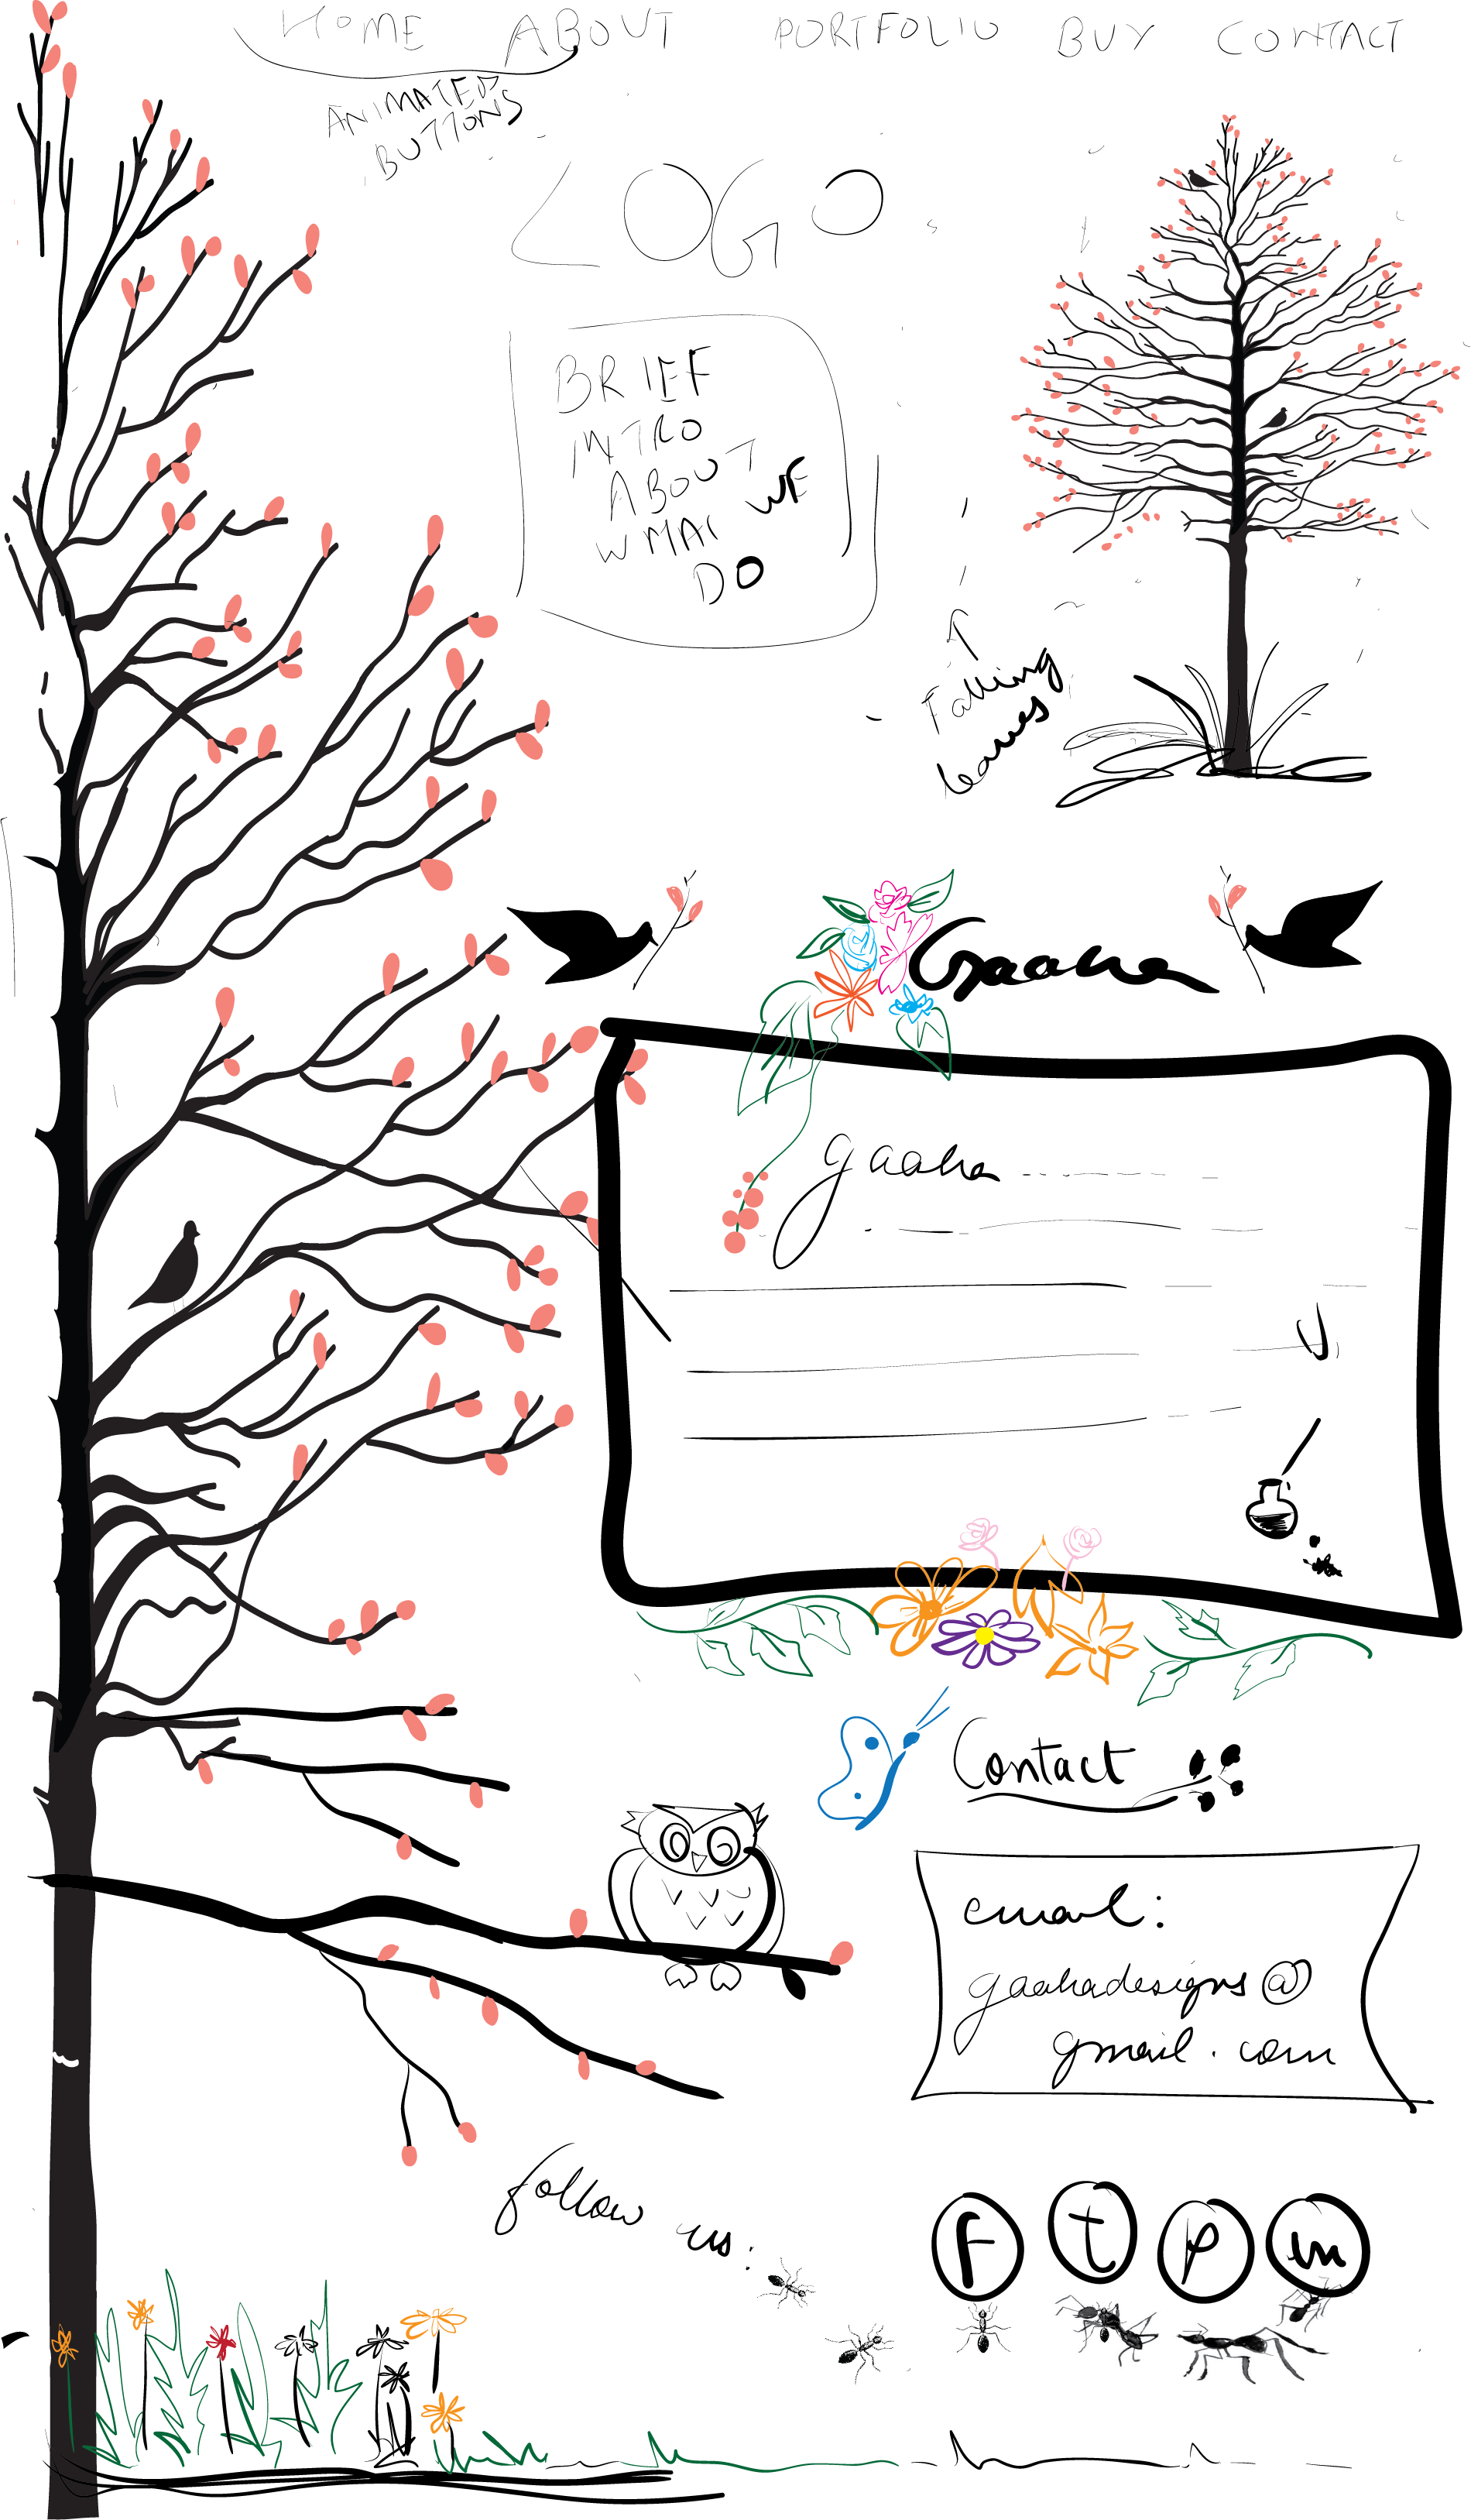 HOME ABOUT PORTFOLIO BUY CONTACT
ANIMATED
BUTTONS
LOGO
BRIEF
INTRO
ABOUT
WHAT WE
DO
Falling
leaves
Gaaha
gaaha
Contact
email:
gaahadesigns@
gmail.com
follow us:
f t p in